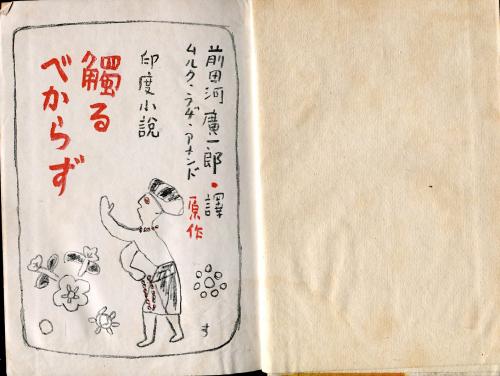 前田河廣一郎・譯
ムルク・ラヂ・アナンド 原作
印度小説
觸る
べからず
す